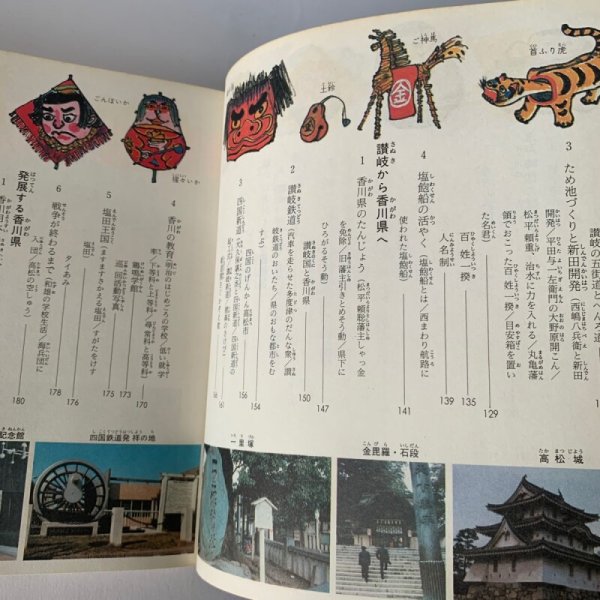 首ふり虎
ご神馬
土鈴
ごんぼいか
金
讃岐の五街道とへんろ道
3 ため池づくりと新田開発（西嶋八兵衛と新田
開発／平田与一左衛門の大野原開こん／
松平頼重、治水に力を入れる／丸亀藩
領でおこった百姓一揆・目安箱を置い
た名君）
百姓一揆
129
135
人名制
139
4 塩飽船の活やく（塩飽船とは／西まわり航路に
使われた塩飽船）
141
讃岐から香川県へ
1 香川県のたんじょう（松平頼聰藩主しゃっ金
を免除／旧藩主引きとめそう動／県下に
ひろがるそう動）
147
讃岐国と香川県
150
2 讃岐鉄道（汽車を走らせた多度津のだんな衆／讃
岐鉄道のおいたち／県のおもな都市をむ
すぶ）
154
四国のげんかん高松市
156
3
4 香川の教育（明治のはじめごろの学校／低い就学
率／下等科と上等科／尋常科と高等科）
170
鶴鳴学館
173
巡回活動写真
175
5 塩田王国（ますますさかえる塩田／すがたをけす
塩田）
175
タイあみ
176
6 戦争が終わるまで
178
180
発展する香川県
1
高松城
金毘羅・石段
一里塚
四国鉄道発祥の地
記念館